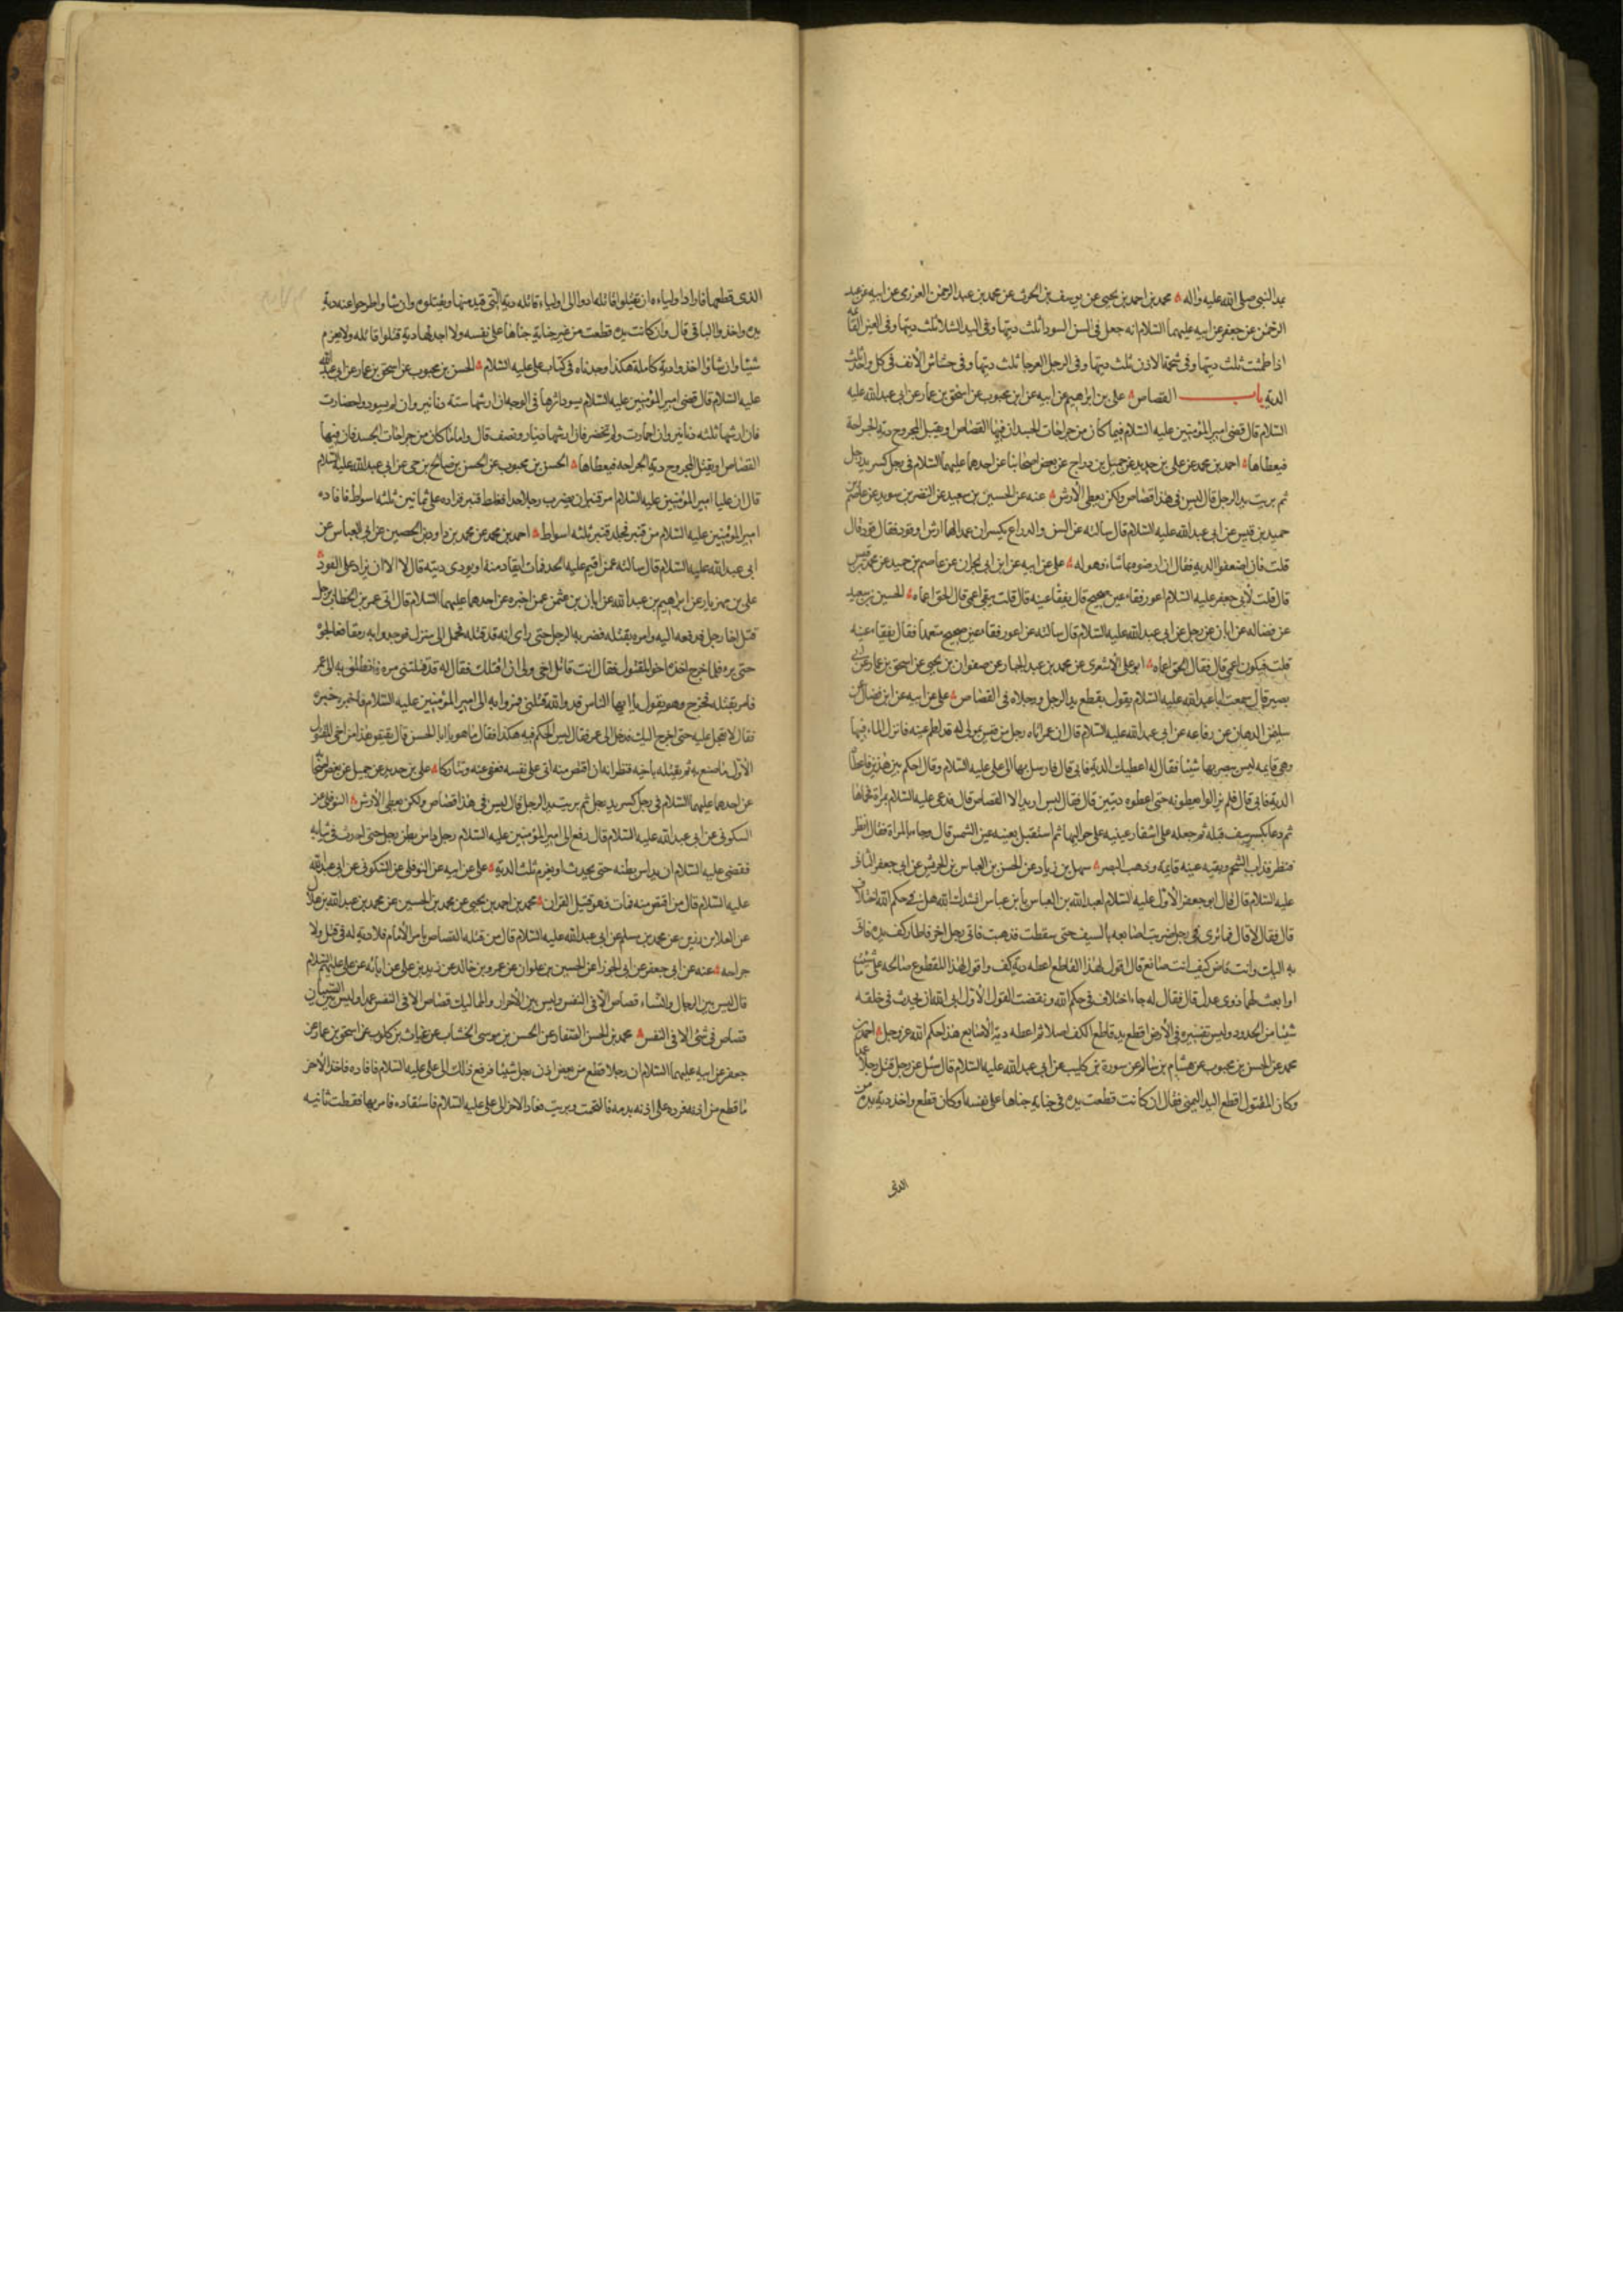 يد النبي صلى الله عليه واله محمد بن احمد بن يحيى عن يوسف بن الحرث عن محمد بن عبد الرحمن العزرمى عن ابيه عن عبد
الرحمن عن جعفر عن ابيه عليهما السلام انه جعل فى السن السوداء ثلث ديتها وفى اليد الشلا ثلث ديتها وفى العين القائمة
اذا طمثت ثلث ديتها وفى شحمة الاذن ثلث ديتها وفى الرجل العرجا ثلث ديتها وفى خشاش الانف فى كل واحد ثلث
الدية باب القصاص على بن ابرهيم عن ابيه عن ابن محبوب عن اسحق بن عمار عن ابى عبد الله عليه
السلام قال قضى امير المؤمنين عليه السلام فيما كان من جراحات الجسد ان فيها القصاص او يقبل المجروح دية الجراحة
فيعطاها احمد بن محمد عن على بن حديد عن جميل بن دراج عن بعض اصحابنا عن احدهما عليهما السلام فى رجل كسر يد رجل
ثم بريت يد الرجل قال ليس فى هذا قصاص ولكن يعطى الارش عنه عن الحسين بن سعيد عن النضر بن سويد عن عاصم بن
حميد بن قيس عن ابى عبد الله عليه السلام قال سالته عن السن والذراع يكسران عمدا لهما ارش او قود فقال قود قال
قلت فان اضعفوا الدية فقال ان ارضوه بما شاء فهو له على عن ابيه عن ابن ابى نجران عن عاصم بن حميد عن محمد بن قيس
قال قلت لأبى جعفر عليه السلام اعور فقاء عين صحيح قال يفقا عينه قال قلت يبقى اعمى قال الحق اعماه الحسين بن سعيد
عن فضاله عن ابان عن رجل عن ابى عبد الله عليه السلام قال سالته عن اعور فقاء عين صحيح متعمدا فقال يفقاء عينه
قلت فيكون اعمى قال فقال الحق اعماه ابو على الاشعرى عن محمد بن عبد الجبار عن صفوان بن يحيى عن اسحق بن عمار عن ابى
بصير قال سمعت ابا عبد الله عليه السلام يقول يقطع يد الرجل ورجلاه فى القصاص على عن ابيه عن ابن فضال عن
سليمن الدهان عن رفاعه عن ابى عبد الله عليه السلام قال ان عمر اتاه رجل من قيس بمولى له قد لطم عينه فانزل الماء فيها
وهى قايمه ليس يبصر بها شيئا فقال له اعطيك الدية فابى قال فارسل بها الى على عليه السلام وقال احكم بين هذين فاعطاه
الدية فابى قال فلم يزالوا يعطونه حتى اعطوه ديتين قال فقال ليس اريد الا القصاص قال فدعى عليه السلام بمراة فحماها
ثم دعا بكرسف فبله ثم جعله على اشفار عينيه على حواليها ثم استقبل بعينه عين الشمس قال وجاء بالمراة فقال انظر
فنظر فذاب الشحم وبقيه عينه قايمة وذهب البصر سهل بن زياد عن الحسن بن العباس بن الحريش عن ابى جعفر الثانى
عليه السلام قال قال ابو جعفر الاول عليه السلام لعبد الله بن العباس يا بن عباس انشدك الله هل فى حكم الله اختلاف
قال فقال لا قال فما ترى فى رجل ضربت اصابعه بالسيف حتى سقطت فذهبت فاتى رجل اخر فاطار كف يده فاتى
به اليك وانت قاض كيف انت صانع قال اقول لهذا القاطع اعطه دية كف واقول لهذا المقطوع صالحه على ما شئت
او ابعث لهما ذوى عدل قال فقال له جاء اختلاف فى حكم الله ونقضت القول الاول ابى الله ان يحدث فى خلقه
شيئا من الحدود وليس تفسيره فى الارض اقطع يد قاطع الكف اصلا ثم اعطه دية الاصابع هذا حكم الله عز وجل احمد بن
محمد عن الحسن بن محبوب عن هشام بن سالم عن سورة بن كليب عن ابى عبد الله عليه السلام قال سئل عن رجل قتل رجلا عمدا
وكان المقتول اقطع اليد اليمنى فقال ان كانت قطعت يده فى جناية جناها على نفسه او كان قطع واخذ دية يده من
الذى
الذى قطعها فاراد اولياءه ان يقتلوا قاتله ادوا الى اولياء قاتله دية التى قيد منها ويقتلوه وان شاوا طرحوا عنه دية
يده واخذوا الباقى قال وان كانت يده قطعت من غير جناية جناها على نفسه ولا اخذ لها دية قتلوا قاتله ولا يغرم
شيئا وان شاؤا اخذوا دية كاملة هكذا وجدناه فى كتاب على عليه السلام الحسن بن محبوب عن اسحق بن عمار عن ابى عبد الله
عليه السلام قال قضى امير المؤمنين عليه السلام يسود اثرها فى الوجه ان ارشها ستة دنانير وان لم يسود واخضارت
فان ارشها ثلثه دنانير وان احمارت ولم تخضر فان ارشها دينار ونصف قال واما ما كان من جراحات الجسد فان فيها
القصاص او يقبل المجروح دية الجراحه فيعطاها الحسن بن محبوب عن الحسن بن صالح بن حى عن ابى عبد الله عليه السلام
قال ان عليا امير المؤمنين عليه السلام امر قنبر ان يضرب رجلا حدا فغلط قنبر فزاده على ثمانين ثلثه اسواط فاقاده
امير المؤمنين عليه السلام من قنبر فجلد قنبر ثلثه اسواط احمد بن محمد عن محمد بن داود بن الحصين عن ابى العباس عن
ابى عبد الله عليه السلام قال سالته عمن اقيم عليه الحد فمات ايقاد منه او يودى ديته قال لا الا ان يزاد على القود
على بن مهزيار عن ابراهيم بن عبد الله عن ابان بن عثمن عمن اخبره عن احدهما عليهما السلام قال اتى عمر بن الخطاب برجل
قتل اخا رجل فدفعه اليه وامره بقتله فضربه الرجل حتى راى انه قد قتله فحمل الى منزله فوجدوا به رمقا فعالجوه
حتى برء فلما خرج اخذه اخو المقتول فقال انت قاتل اخى ولى ان اقتلك فقال له قد قتلتنى مره فانطلق به الى عمر
فامر بقتله فخرج وهو يقول يا ايها الناس قد والله قتلنى فمروا به الى امير المؤمنين عليه السلام فاخبره خبره
فقال لا تعجل عليه حتى اخرج اليك فدخل الى عمر فقال ليس الحكم فيه هكذا فقال ما هو يا ابا الحسن قال يقتص هذا من اخى المقتول
الاول ما صنع به ثم يقتله باخيه فنظر انه ان اقتص منه اتى على نفسه فعفى عنه وتتاركا على بن حديد عن جميل عن بعض اصحابنا
عن احدهما عليهما السلام فى رجل كسر يد رجل ثم بريت يد الرجل قال ليس فى هذا قصاص ولكن يعطى الارش النوفلى عن
السكونى عن ابى عبد الله عليه السلام قال رفع الى امير المؤمنين عليه السلام رجل داس بطن رجل حتى احدث فى ثيابه
فقضى عليه السلام ان يداس بطنه حتى يحدث او يغرم ثلث الدية على عن ابيه عن النوفلى عن السكونى عن ابى عبد الله
عليه السلام قال من اقتص منه فمات فهو قتيل القران محمد بن احمد بن يحيى عن محمد بن الحسين عن محمد بن عبد الله بن هلال
عن العلا بن رزين عن محمد بن مسلم عن ابى عبد الله عليه السلام قال من قتله القصاص بامر الامام فلا دية له فى قتل ولا
جراحه عنه عن ابى جعفر عن ابى الجوزا عن الحسين بن علوان عن عمرو بن خالد عن زيد بن على عن ابائه عن على عليهم السلام
قال ليس بين الرجال والنساء قصاص الا فى النفس وليس بين الاحرار والمماليك قصاص الا فى النفس عمدا وليس بين الصبيان
قصاص فى شئ الا فى النفس محمد بن الحسن الصفار عن الحسن بن موسى الخشاب عن غياث بن كلوب عن اسحق بن عمار عن
جعفر عن ابيه عليهما السلام ان رجلا قطع من بعض اذن رجل شيئا فرفع ذلك الى على عليه السلام فاقاده فاخذ الاخر
ما قطع من اذنه فرده على اذنه بدمه فالتحمت وبريت فعاد الاخر الى على عليه السلام فاستقاده فامر بها فقطعت ثانيه